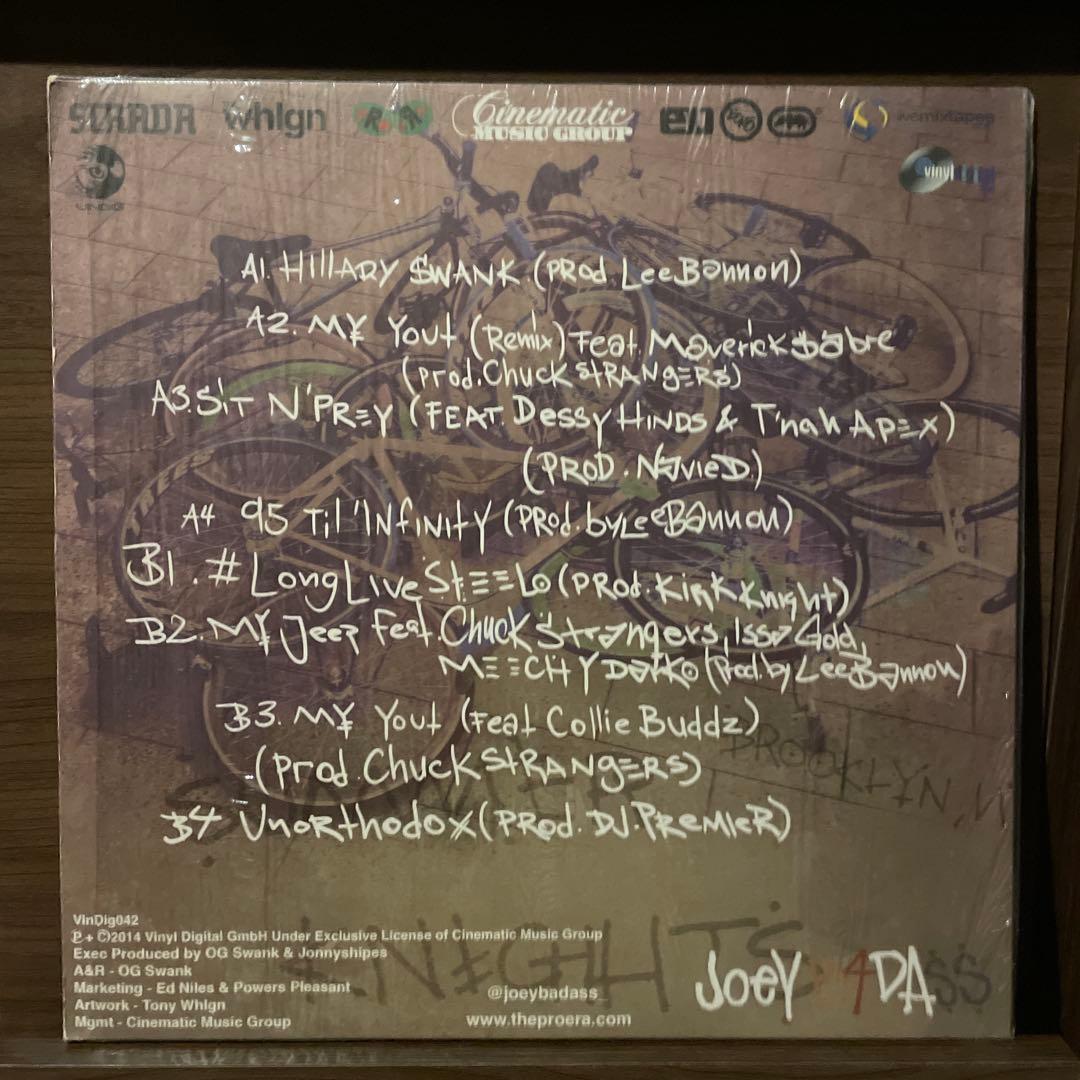 STRADA whlgn Cinematic MUSIC GROUP
livemixtapes
VINDIG vinyl
A1. HIllARY $WANK. (PRod LeeBannon)
A2. M¥ Yout (Remix) Feat. Maverick $abre
(prod. Chuck STRANgERS)
A3. SiT N' PREY (FEAT. Dessy HINDS & T'nah ApEX)
(PROD. NavieD.)
A4 95 Til' 'INfiNiTY (PROd. by LeeBannon)
B1. # LongLive StEELo (PROd. KiRK Knight)
B2. M¥ Jeep feat. Chuck Strangers, Issa Gold,
MEECHY DaRKo (Prod. by LeeBannon)
B3. M¥ Yout (Feat Collie Buddz)
(prod. Chuck STRANgERS)
B4 UnoRthodoX (PRod. DJ. PReMieR)
BROOKLYN
VinDig042
℗ + ©2014 Vinyl Digital GmbH Under Exclusive License of Cinematic Music Group
Exec Produced by OG Swank & Jonnyshipes
A&R - OG Swank
Marketing - Ed Niles & Powers Pleasant
Artwork - Tony Whlgn
Mgmt - Cinematic Music Group
@joeybadass_
www.theproera.com
KNIGHTS
JOEY 4DA $$